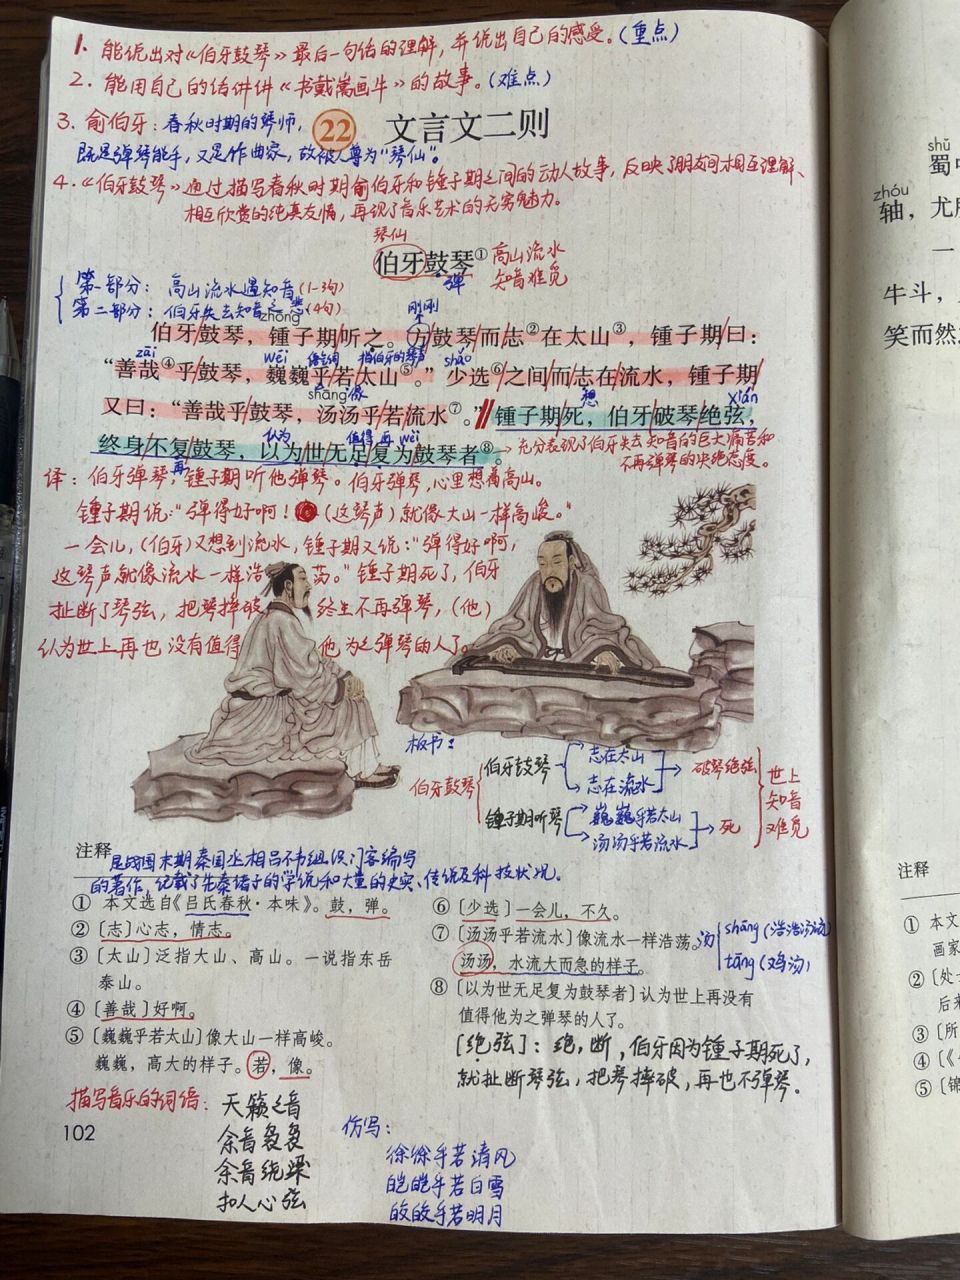 1. 能说出对《伯牙鼓琴》最后一句话的理解,并说出自己的感受。(重点)
2. 能用自己的话讲讲《书戴嵩画牛》的故事。(难点)
3. 俞伯牙:春秋时期的琴师,
既是弹琴能手,又是作曲家,故被人尊为“琴仙”。
22 文言文二则
4.《伯牙鼓琴》通过描写春秋时期俞伯牙和锺子期之间的动人故事,反映了朋友间相互理解、
相互欣赏的纯真友情,再现了音乐艺术的无穷魅力。
琴仙
伯牙鼓琴① 高山流水
弹 知音难觅
第一部分:高山流水遇知音(1-3句)
第二部分:伯牙失去知音之悲(4句)
zhōng 刚刚
伯牙/鼓琴,锺子期/听之。方/鼓琴/而志②在太山③,锺子期/曰:
zāi wēi 语气词 指伯牙的琴声 shǎo
“善哉④乎/鼓琴,巍巍/乎/若/太山⑤。”少选⑥/之间/而志/在/流水,锺子期/
shāng 像 想 xián
又曰:“善哉乎/鼓琴,汤汤乎/若/流水⑦。”//锺子期/死,伯牙/破琴/绝弦,
认为 值得 再 wéi
终身/不复/鼓琴,以为/世无足/复为/鼓琴者⑧。→充分表现了伯牙失去知音的巨大痛苦和
再 不再弹琴的决绝态度。
译:伯牙弹琴,锺子期听他弹琴。伯牙弹琴,心里想着高山。
锺子期说:“弹得好啊!(这琴声)就像大山一样高峻。”
一会儿,(伯牙)又想到流水,锺子期又说:“弹得好啊,
这琴声就像流水一样浩荡。”锺子期死了,伯牙
扯断了琴弦,把琴摔破 终生不再弹琴,(他)
认为世上再也没有值得 他为之弹琴的人了。
板书:
伯牙鼓琴
伯牙鼓琴 志在太山 志在流水 → 破琴绝弦
锺子期听琴 巍巍乎若太山 汤汤乎若流水 → 死
世上
知音
难觅
注释
是战国末期秦国丞相吕不韦组织门客编写
的著作,记载了先秦诸子的学说和大量的史实、传说及科技状况。
① 本文选自《吕氏春秋·本味》。鼓,弹。
②〔志〕心志,情志。
③〔太山〕泛指大山、高山。一说指东岳
泰山。
④〔善哉〕好啊。
⑤〔巍巍乎若太山〕像大山一样高峻。
巍巍,高大的样子。若,像。
⑥〔少选〕一会儿,不久。
⑦〔汤汤乎若流水〕像流水一样浩荡。
汤汤,水流大而急的样子。
汤 shāng(浩浩汤汤)
tāng(鸡汤)
⑧〔以为世无足复为鼓琴者〕认为世上再没有
值得他为之弹琴的人了。
[绝弦]:绝,断,伯牙因为锺子期死了,
就扯断琴弦,把琴摔破,再也不弹琴。
描写音乐的词语:天籁之音
余音袅袅
余音绕梁
扣人心弦
仿写:
徐徐乎若清风
皑皑乎若白雪
皎皎乎若明月
102
shǔ
蜀中
zhóu
轴,尤所
一
牛斗,
笑而然
注释
① 本文
画家
②〔处士
后来
③〔所
④〔《
⑤〔锦